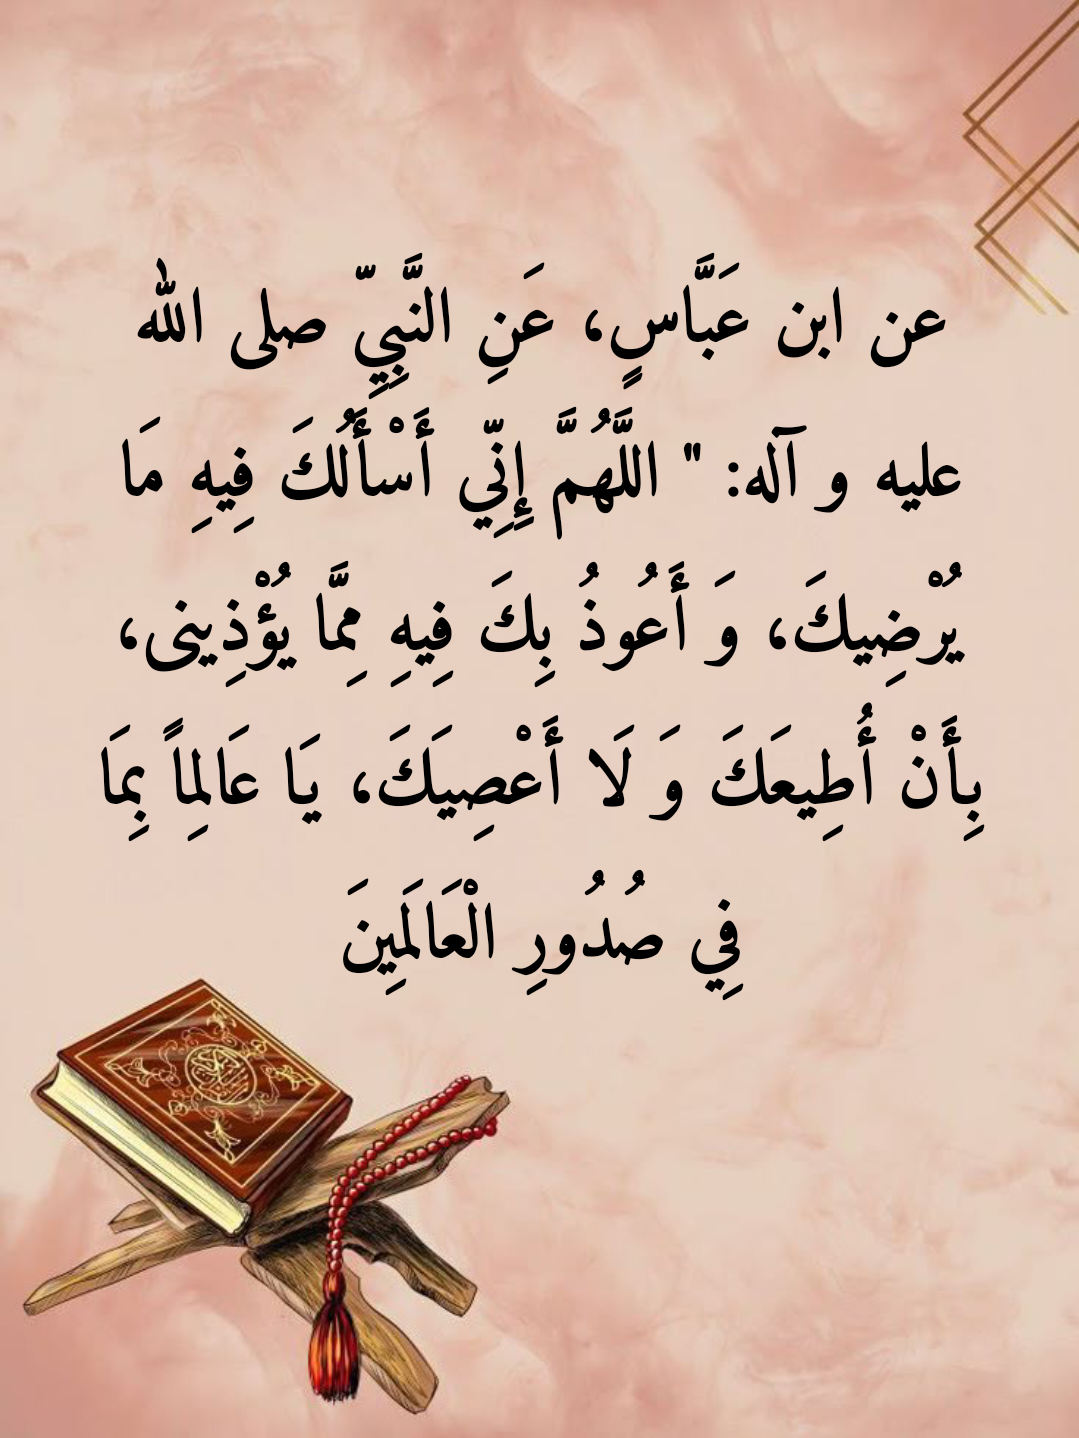 عن ابن عَبَّاسٍ، عَنِ النَّبِيِّ صلى الله
عليه و آله: " اللَّهُمَّ إِنِّي أَسْأَلُكَ فِيهِ مَا
يُرْضِيكَ، وَ أَعُوذُ بِكَ فِيهِ مِمَّا يُؤْذِينى،
بِأَنْ أُطِيعَكَ وَ لَا أَعْصِيَكَ، يَا عَالِماً بِمَا
فِي صُدُورِ الْعَالَمِينَ